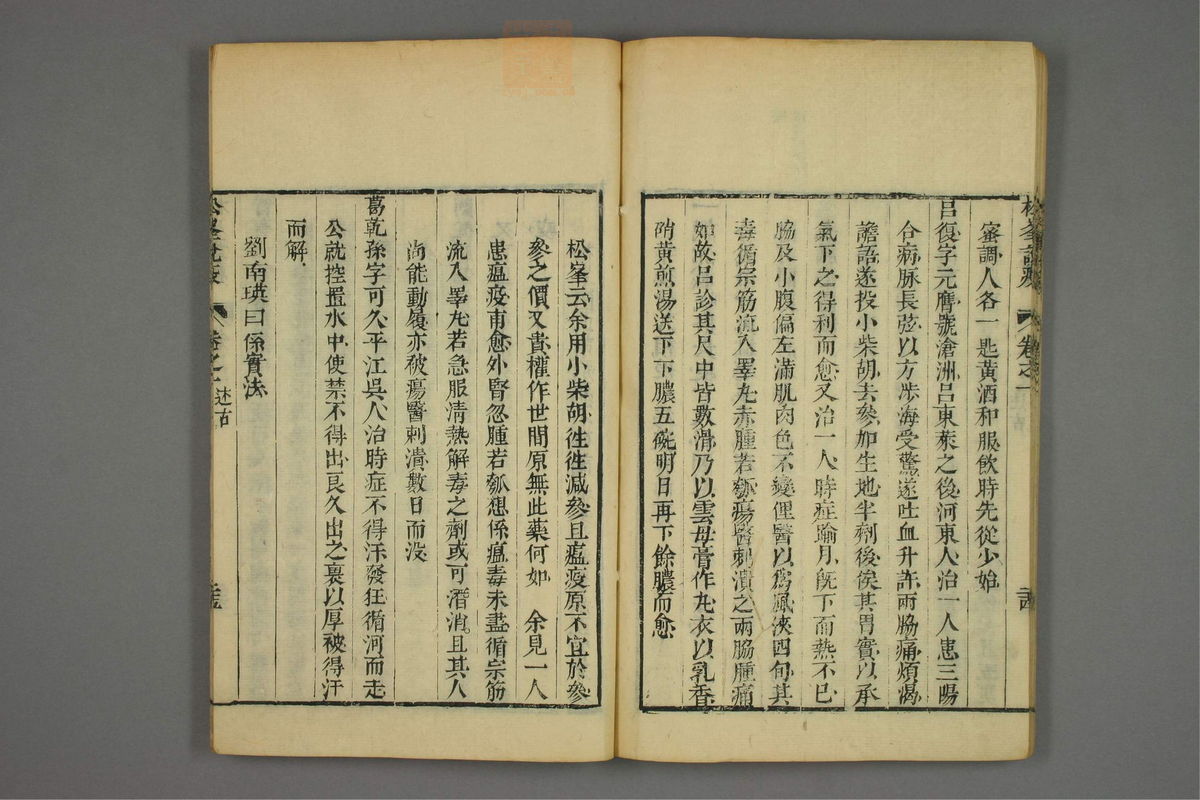 蜜調人各一匙黃酒和服飲時先從少始
呂復字元膺號滄洲呂東萊之後河東人治一人患三陽
合病脉長弦以方涉海受驚遂吐血升許兩脇痛煩渴
譫語遂投小柴胡去參加生地半劑後俟其胃實以承
氣下之得利而愈又治一人時症踰月旣下而熱不已
脇及小腹偏左滿肌肉色不變俚醫以爲風浹四旬其
毒循宗筋流入睪丸赤腫若瓠瘍醫刺潰之兩脇腫痛
如故呂診其尺中皆數滑乃以雲母膏作丸衣以乳香
硝黃煎湯送下下膿五碗明日再下餘膿而愈
松峯云余用小柴胡徃徃減參且瘟疫原不宜於參
參之價又貴權作世間原無此藥何如 余見一人
患瘟疫甫愈外腎忽腫若瓠想係瘟毒未盡循宗筋
流入睪丸若急服淸熱解毒之劑或可潛消且其人
尚能動履亦被瘍醫刺潰數日而沒
葛乾孫字可久平江吳人治時症不得汗發狂循河而走
公就控置水中使禁不得出良久出之裹以厚被得汗
而解
劉南瑛曰係實法
松峯說疫 卷之一 述古